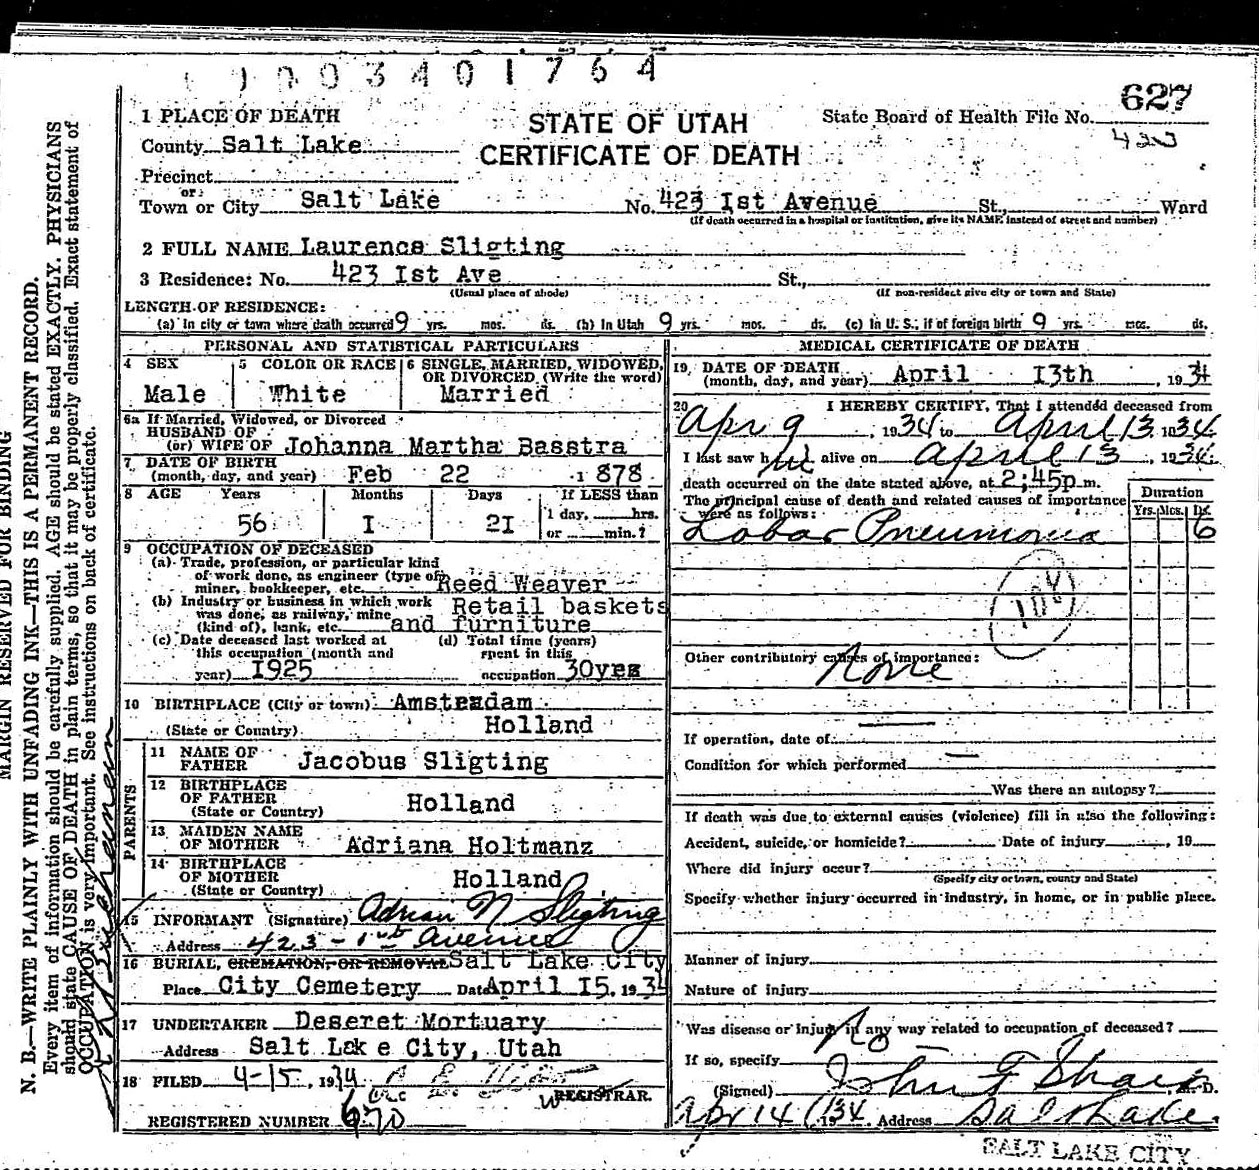 1003401764
627
State Board of Health File No.
423
STATE OF UTAH
CERTIFICATE OF DEATH
1 PLACE OF DEATH
County Salt Lake
Precinct
or
Town or City Salt Lake No. 423 Ist Avenue St., Ward
(If death occurred in a hospital or institution, give its NAME instead of street and number)
2 FULL NAME Laurence Sligting
3 Residence: No. 423 Ist Ave St.,
(Usual place of abode) (If non-resident give city or town and State)
LENGTH OF RESIDENCE:
(a) In city or town where death occurred 9 yrs. mos. ds. (b) In Utah 9 yrs. mos. ds. (c) In U. S., if of foreign birth 9 yrs. mos. ds.
PERSONAL AND STATISTICAL PARTICULARS
4 SEX
Male
5 COLOR OR RACE
White
6 SINGLE, MARRIED, WIDOWED,
OR DIVORCED (Write the word)
Married
6a If Married, Widowed, or Divorced
HUSBAND OF
(or) WIFE OF Johanna Martha Basstra
7 DATE OF BIRTH
(month, day, and year) Feb 22 1878
8 AGE Years Months Days If LESS than
1 day, hrs.
56 I 2I or min.?
9 OCCUPATION OF DECEASED
(a) Trade, profession, or particular kind
of work done, as engineer (type of
miner, bookkeeper, etc. Reed Weaver
(b) Industry or business in which work Retail baskets
was done, as railway, mine
(kind of), bank, etc. and furniture
(c) Date deceased last worked at (d) Total time (years)
this occupation (month and spent in this
year) I925 occupation 30yrs
10 BIRTHPLACE (City or town) Amsterdam
(State or Country) Holland
PARENTS
11 NAME OF
FATHER Jacobus Sligting
12 BIRTHPLACE
OF FATHER Holland
(State or Country)
13 MAIDEN NAME
OF MOTHER Adriana Holtmanz
14 BIRTHPLACE
OF MOTHER Holland
(State or Country)
15 INFORMANT (Signature) Adrian N Sligting
Address 423 - 1st Avenue
16 BURIAL, CREMATION, OR REMOVAL Salt Lake City
Place City Cemetery Date April I5, 1934
17 UNDERTAKER Deseret Mortuary
Address Salt Lake City, Utah
18 FILED 4-15, 1934
REGISTRAR.
REGISTERED NUMBER 670
MEDICAL CERTIFICATE OF DEATH
19 DATE OF DEATH
(month, day, and year) April I3th, 1934
20 I HEREBY CERTIFY, That I attended deceased from
Apr 9, 1934 to April 13 1934
I last saw him alive on April 13, 1934.
death occurred on the date stated above, at 2;45p m.
The principal cause of death and related causes of importance
were as follows:
Duration
Yrs. Mos. Ds.
Lobar Pneumonia 6
108
Other contributory causes of importance:
None
If operation, date of
Condition for which performed
Was there an autopsy?
If death was due to external causes (violence) fill in also the following:
Accident, suicide, or homicide? Date of injury, 19
Where did injury occur?
(Specify city or town, county and State)
Specify whether injury occurred in industry, in home, or in public place.
Manner of injury
Nature of injury
Was disease or injury in any way related to occupation of deceased?
No
If so, specify
(Signed) John F Sharp M. D.
Apr 14 1934. Address Salt Lake
SALT LAKE CITY
MARGIN RESERVED FOR BINDING
N. B.—WRITE PLAINLY WITH UNFADING INK—THIS IS A PERMANENT RECORD.
Every item of information should be carefully supplied. AGE should be stated EXACTLY. PHYSICIANS
should state CAUSE OF DEATH in plain terms, so that it may be properly classified. Exact statement of
OCCUPATION is very important. See instructions on back of certificate.